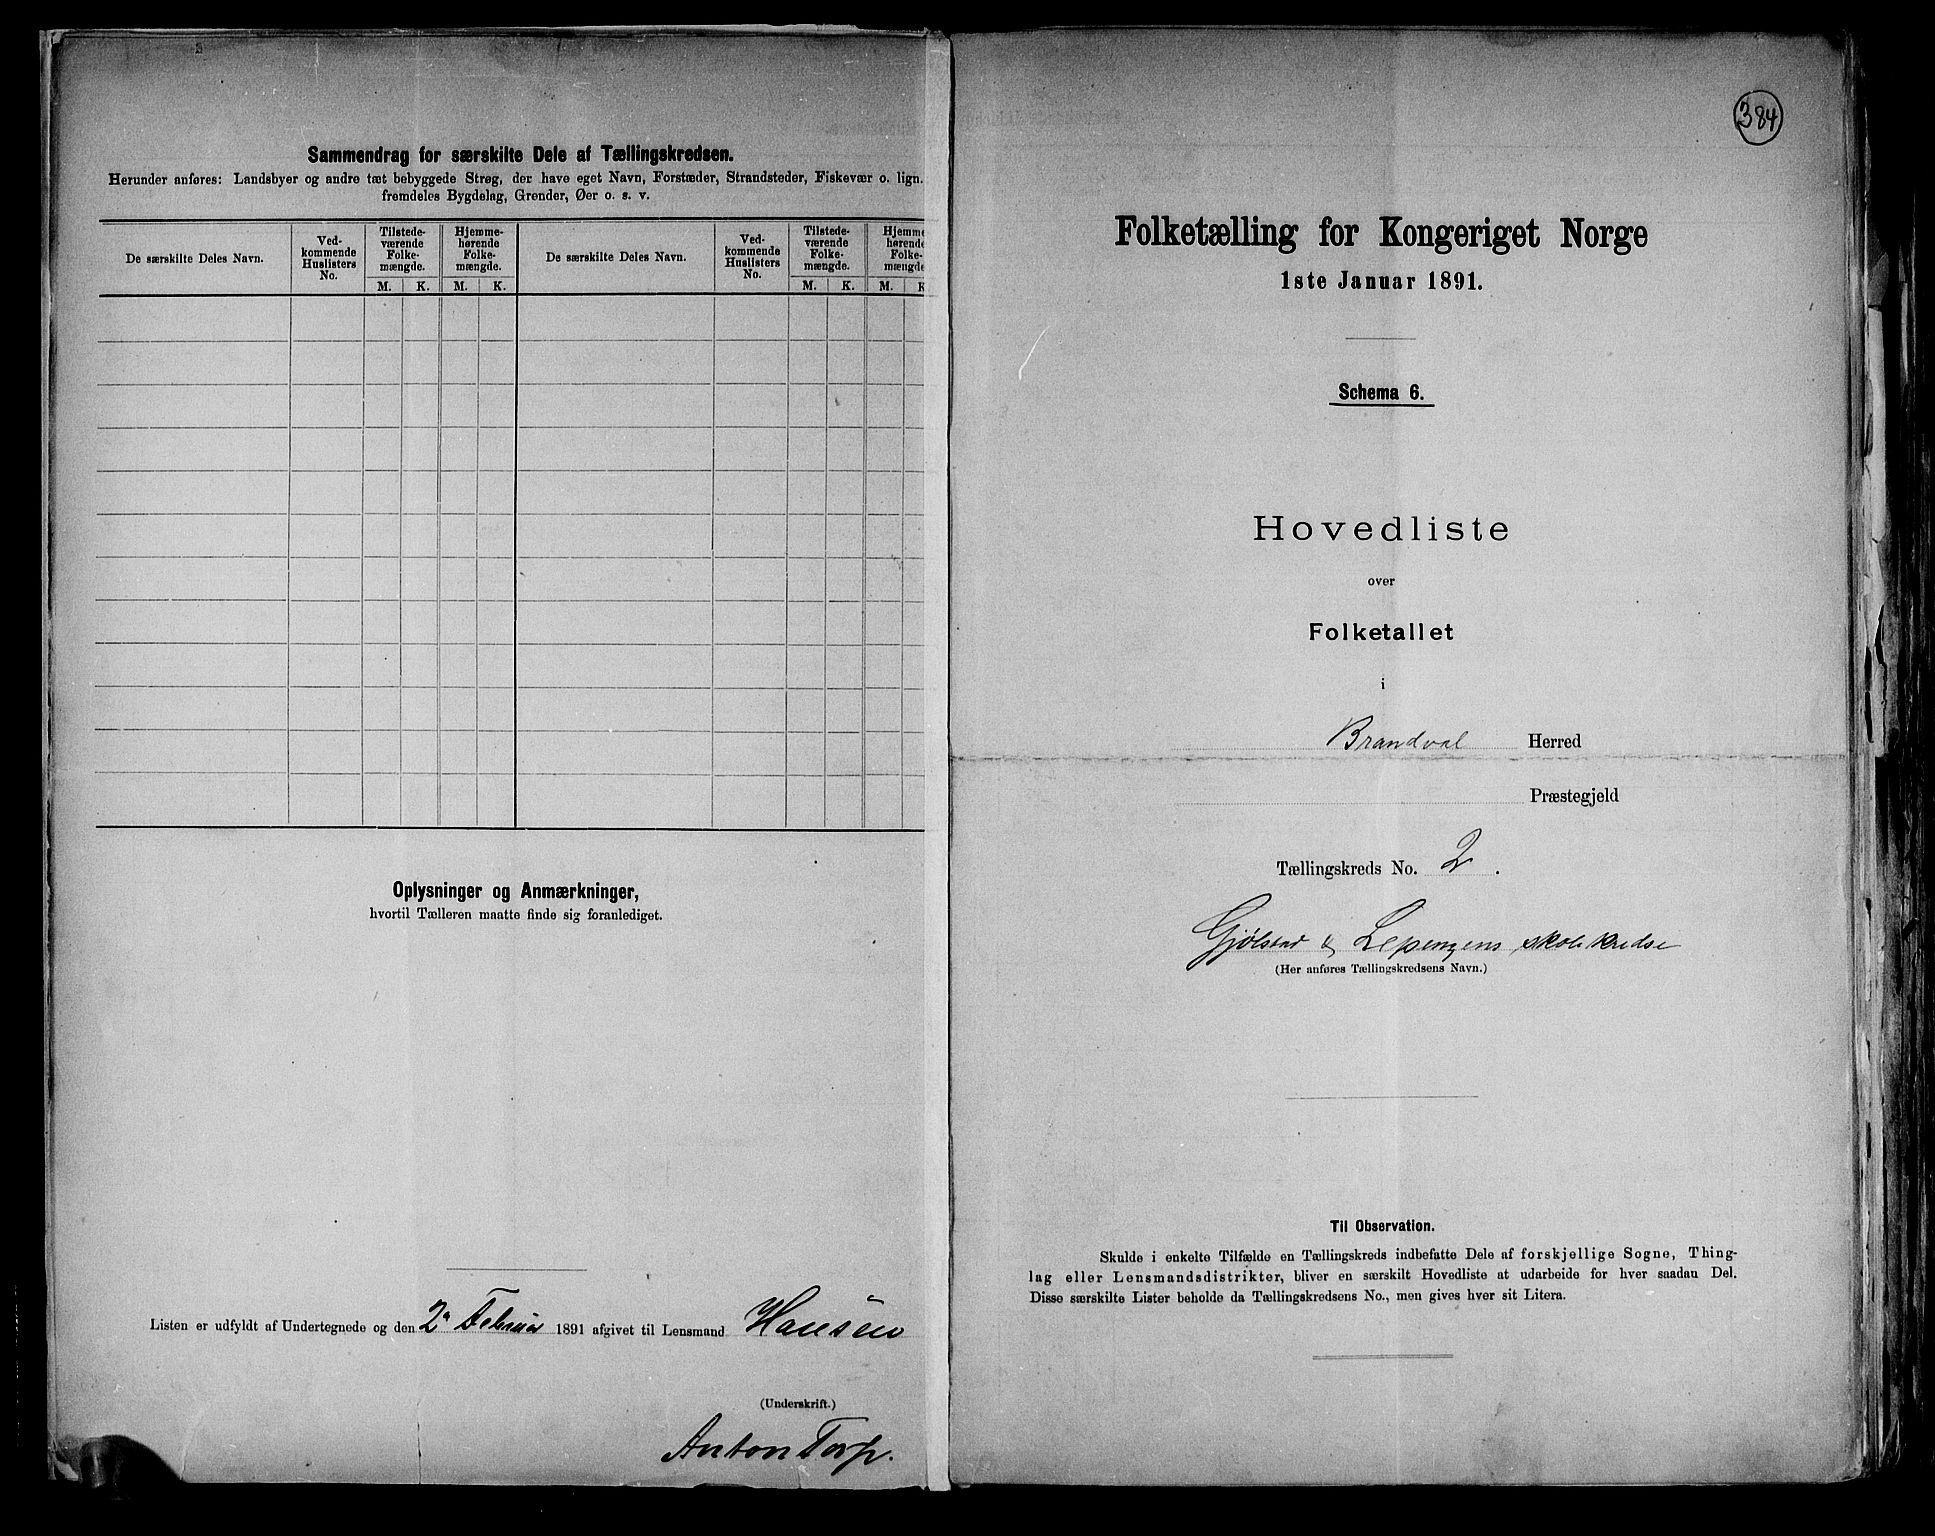 Sammendrag for særskilte Dele af Tællingskredsen.
Herunder anføres: Landsbyer og andre tæt bebyggede Strøg, der have eget Navn, Forstæder, Strandsteder, Fiskevær o. lign.
fremdeles Bygdelag, Grender, Øer o. s. v.
De særskilte Deles Navn.
Ved-
kommende
Huslisters
No.
Tilstede-
værende
Folke-
mængde.
Hjemme-
hørende
Folke-
mængde.
M. K. M. K.
De særskilte Deles Navn.
Ved-
kommende
Huslisters
No.
Tilstede-
værende
Folke-
mængde.
Hjemme
hørende
Folke-
mængde
M. K. M. K
Oplysninger og Anmærkninger,
hvortil Tælleren maatte finde sig foranlediget.
Listen er udfyldt af Undertegnede og den 2 Februar 1891 afgivet til Lensmand Hansen
(Underskrift.)
Anton Torp.
384
Folketælling for Kongeriget Norge
1ste Januar 1891.
Schema 6.
Hovedliste
over
Folketallet
i
Brandval Herred
Præstegjeld
Tællingskreds No. 2.
Gjölstad & skolekredse
(Her anføres Tællingskredsens Navn.)
Til Observation.
Skulde i enkelte Tilfælde en Tællingskreds indbefatte Dele af forskjellige Sogne, Thing-
lag eller Lensmandsdistrikter, bliver en særskilt Hovedliste at udarbeide for hver saadan Del.
Disse særskilte Lister beholde da Tællingskredsens No., men gives hver sit Litera.